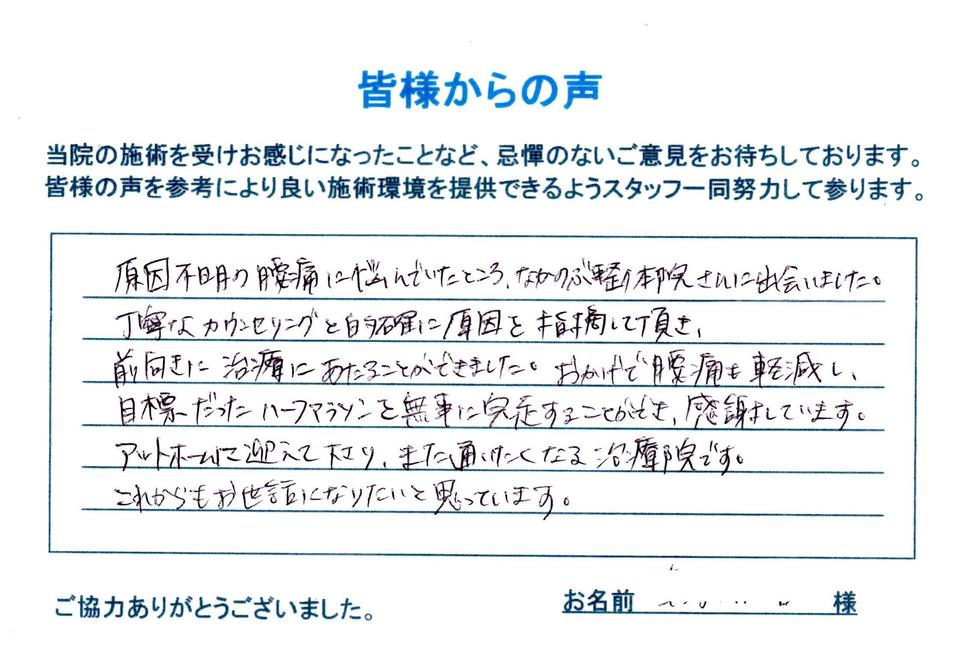 皆様からの声
当院の施術を受けお感じになったことなど、忌憚のないご意見をお待ちしております。
皆様の声を参考により良い施術環境を提供できるようスタッフ一同努力して参ります。
原因不明の腰痛に悩んでいたところ、なかのぶ整体院さんに出会いました。
丁寧なカウンセリングと的確に原因を指摘して頂き、
前向きに治療にあたることができました。おかげで腰痛も軽減し、
目標だったハーフマラソンを無事に完走することができ、感謝しています。
アットホームに迎えて下さり、また通いたくなる治療院です。
これからもお世話になりたいと思っています。
ご協力ありがとうございました。
お名前 様